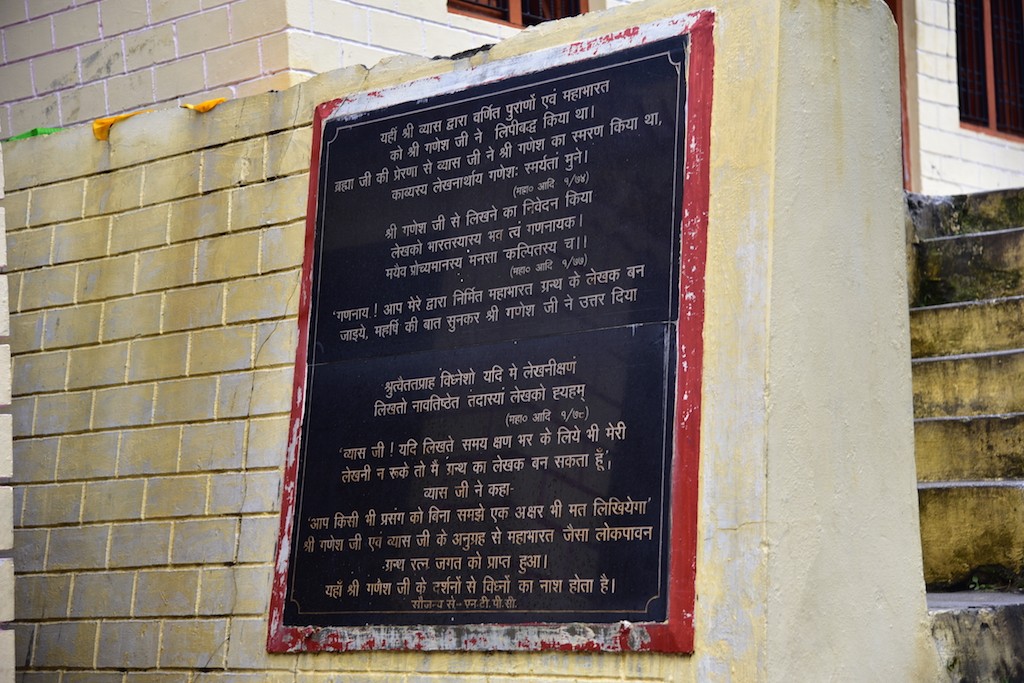 यहीं श्री व्यास द्वारा वर्णित पुराणों एवं महाभारत
को श्री गणेश जी ने लिपीबद्ध किया था।
ब्रह्मा जी की प्रेरणा से व्यास जी ने श्री गणेश का स्मरण किया था,
काव्यस्य लेखनार्थाय गणेशः स्मर्यतां मुने।
(महा० आदि १/७४)
श्री गणेश जी से लिखने का निवेदन किया
लेखको भारतस्यास्य भव त्वं गणनायक।
मयेव प्रोच्यमानस्य मनसा कल्पितस्य च।।
(महा० आदि १/७७)
'गणनाय ! आप मेरे द्वारा निर्मित महाभारत ग्रन्थ के लेखक बन
जाइये, महर्षि की बात सुनकर श्री गणेश जी ने उत्तर दिया
श्रुत्वैततप्राह विघ्नेशो यदि मे लेखनीक्षणं
लिखतो नावतिष्ठेत तदास्यां लेखको ह्यहम्
(महा० आदि १/७८)
'व्यास जी ! यदि लिखते समय क्षण भर के लिये भी मेरी
लेखनी न रूके तो मैं ग्रन्थ का लेखक बन सकता हूँ'।
व्यास जी ने कहा-
'आप किसी भी प्रसंग को बिना समझे एक अक्षर भी मत लिखियेगा'
श्री गणेश जी एवं व्यास जी के अनुग्रह से महाभारत जैसा लोकपावन
ग्रन्थ रत्न जगत को प्राप्त हुआ।
यहाँ श्री गणेश जी के दर्शनों से विघ्नों का नाश होता है।
सौजन्य से - एन.टी.पी.सी.